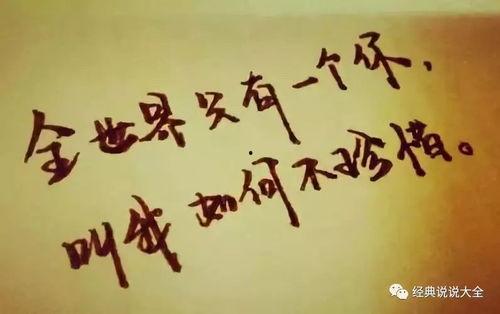 全世界只有一个你，
叫我如何不珍惜。
经典说说大全